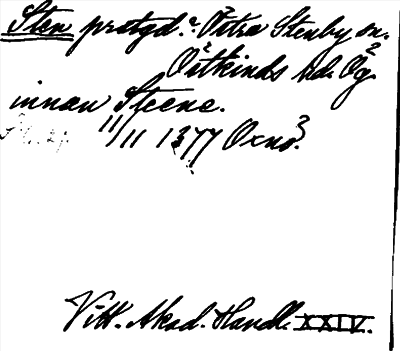 Sten prstgd. Östra Stenby sn.
Östkinds hd. Ög.
innan Steene.
11/11 1377 Oxnö.
Vitt. Akad. Handl. XXIV.